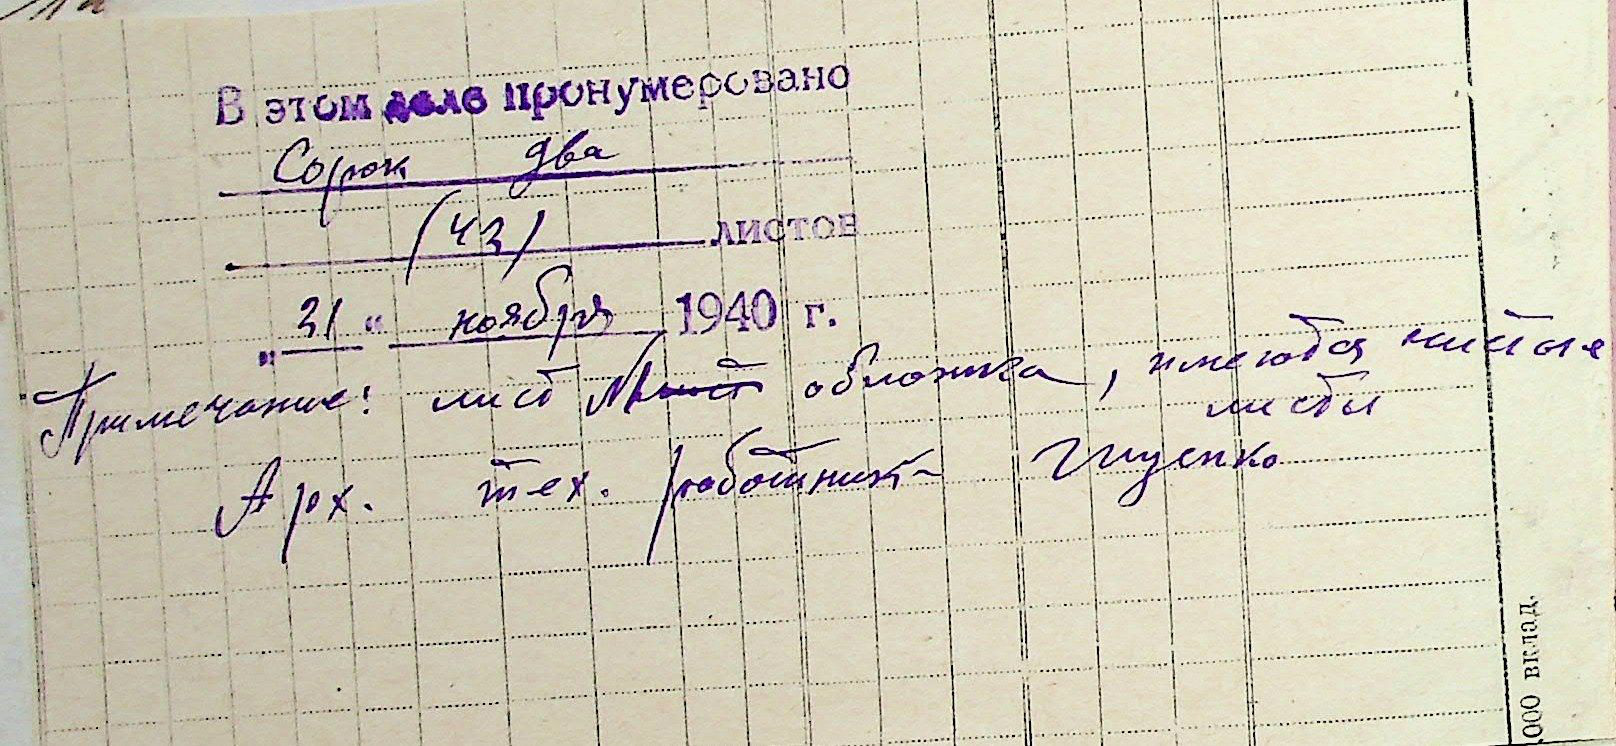 В этом деле пронумеровано
Сорок два
(42) листов
„31“ ноября 1940 г.
Примечание: лист обложка, имеются чистые
листы
Арх. тех. работник
000 вклад.